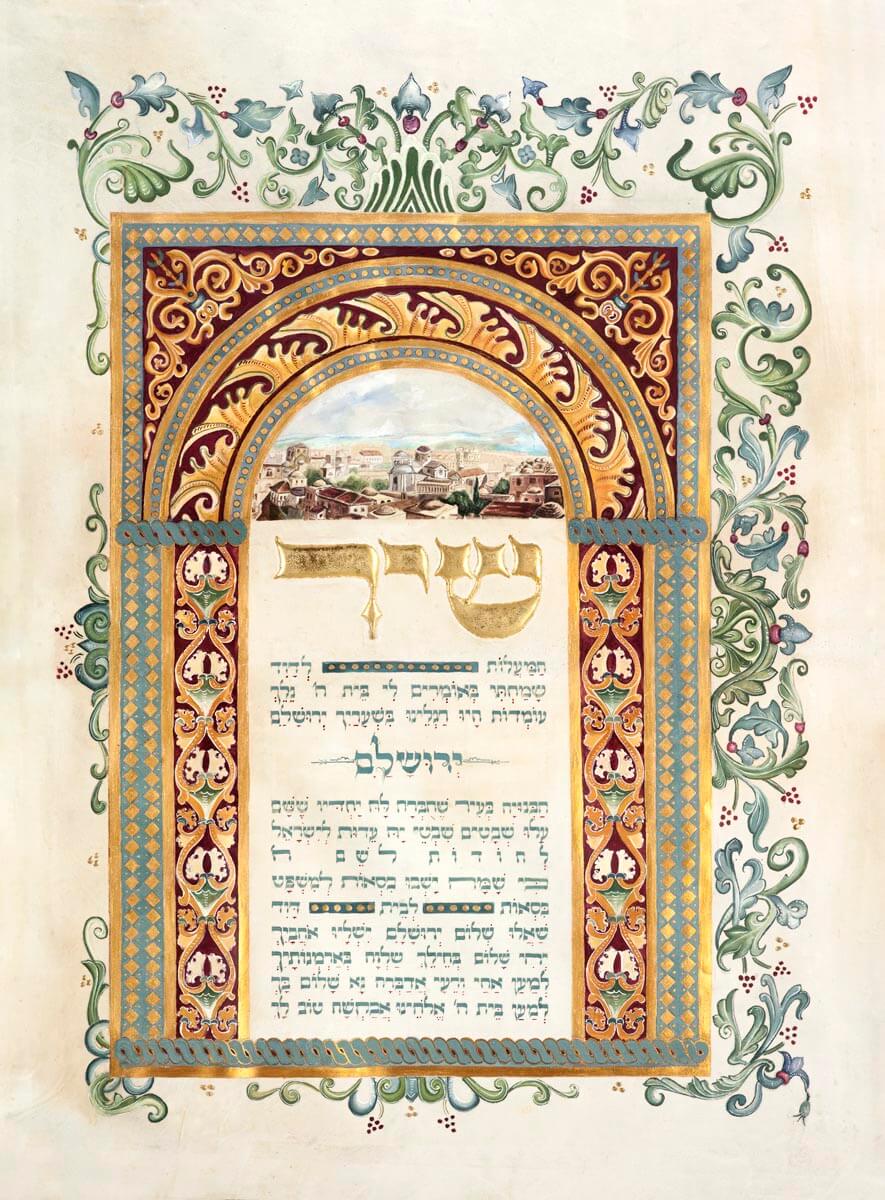 שיר
הַמַּעֲלוֹת לְדָוִד
שָׂמַחְתִּי בְּאוֹמְרִים לִי בֵּית ה' נֵלֵךְ
עוֹמְדוֹת הָיוּ רַגְלֵינוּ בִּשְׁעָרַיִךְ יְרוּשָׁלִָם
יְרוּשָׁלִַם
הַבְּנוּיָה כְּעִיר שֶׁחֻבְּרָה לָּהּ יַחְדָּיו שֶׁשָּׁם
עָלוּ שְׁבָטִים שִׁבְטֵי יָהּ עֵדוּת לְיִשְׂרָאֵל
לְהוֹדוֹת לְשֵׁם ה'
כִּי שָׁמָּה יָשְׁבוּ כִסְאוֹת לְמִשְׁפָּט
כִּסְאוֹת לְבֵית דָּוִד
שַׁאֲלוּ שְׁלוֹם יְרוּשָׁלִָם יִשְׁלָיוּ אֹהֲבָיִךְ
יְהִי שָׁלוֹם בְּחֵילֵךְ שַׁלְוָה בְּאַרְמְנוֹתָיִךְ
לְמַעַן אַחַי וְרֵעָי אֲדַבְּרָה נָּא שָׁלוֹם בָּךְ
לְמַעַן בֵּית ה' אֱלֹהֵינוּ אֲבַקְשָׁה טוֹב לָךְ